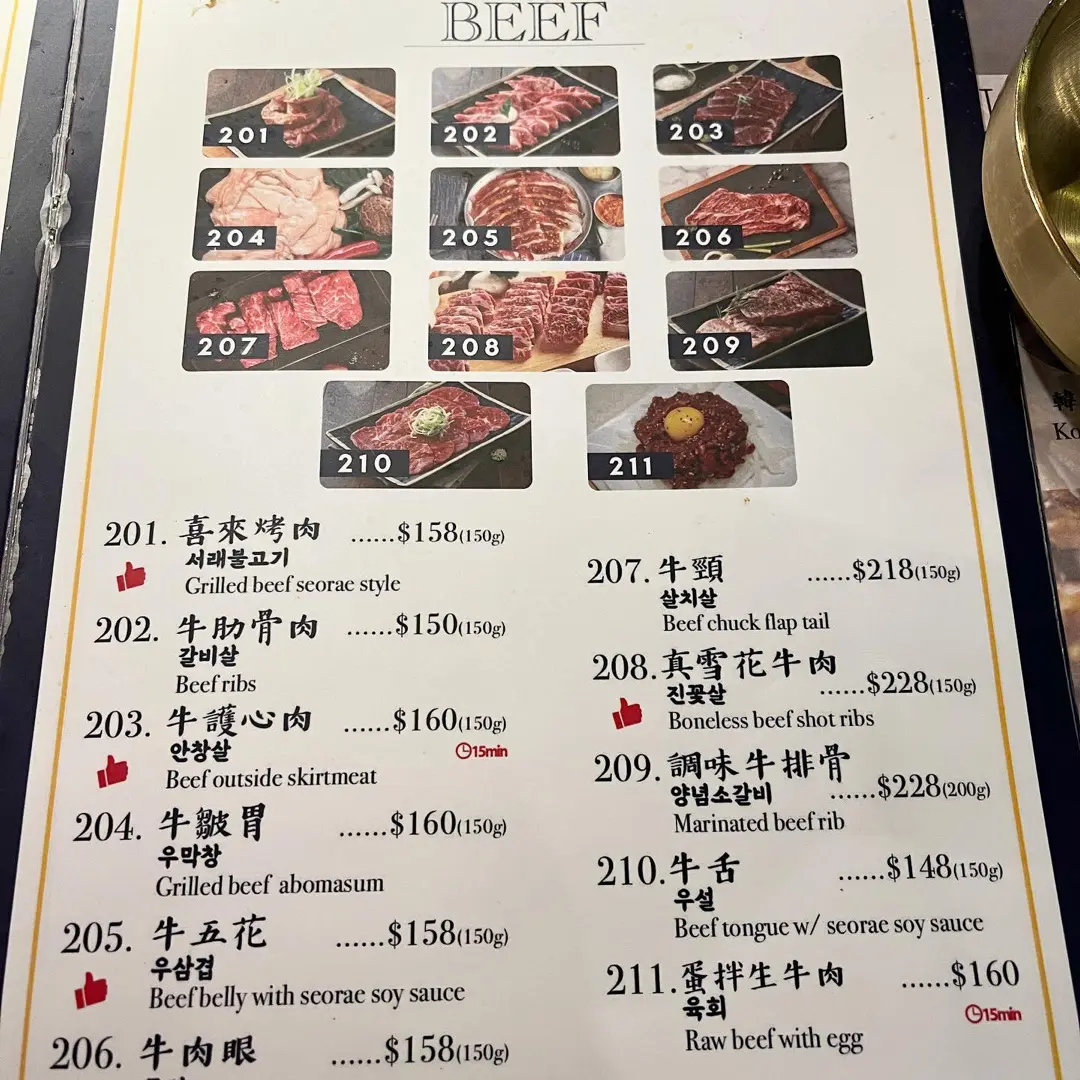 BEEF
201
202
203
204
205
206
207
208
209
210
211
201. 喜來烤肉 ......$158(150g)
서래불고기
Grilled beef seorae style
202. 牛肋骨肉 ......$150(150g)
갈비살
Beef ribs
203. 牛護心肉 ......$160(150g)
안창살 15min
Beef outside skirtmeat
204. 牛皺胃 ......$160(150g)
우막창
Grilled beef abomasum
205. 牛五花 ......$158(150g)
우삼겹
Beef belly with seorae soy sauce
206. 牛肉眼 ......$158(150g)
207. 牛頸 ......$218(150g)
살치살
Beef chuck flap tail
208. 真雪花牛肉 ......$228(150g)
진꽃살
Boneless beef shot ribs
209. 調味牛排骨 ......$228(200g)
양념소갈비
Marinated beef rib
210. 牛舌 ......$148(150g)
우설
Beef tongue w/ seorae soy sauce
211. 蛋拌生牛肉 ......$160
육회 15min
Raw beef with egg
韓
Ko